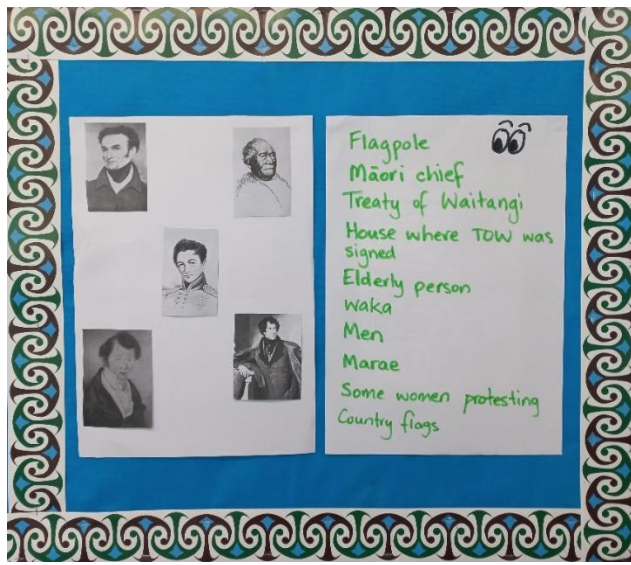 Flagpole
Māori chief
Treaty of Waitangi
House where TOW was
signed
Elderly person
Waka
Men
Marae
Some women protesting
Country flags